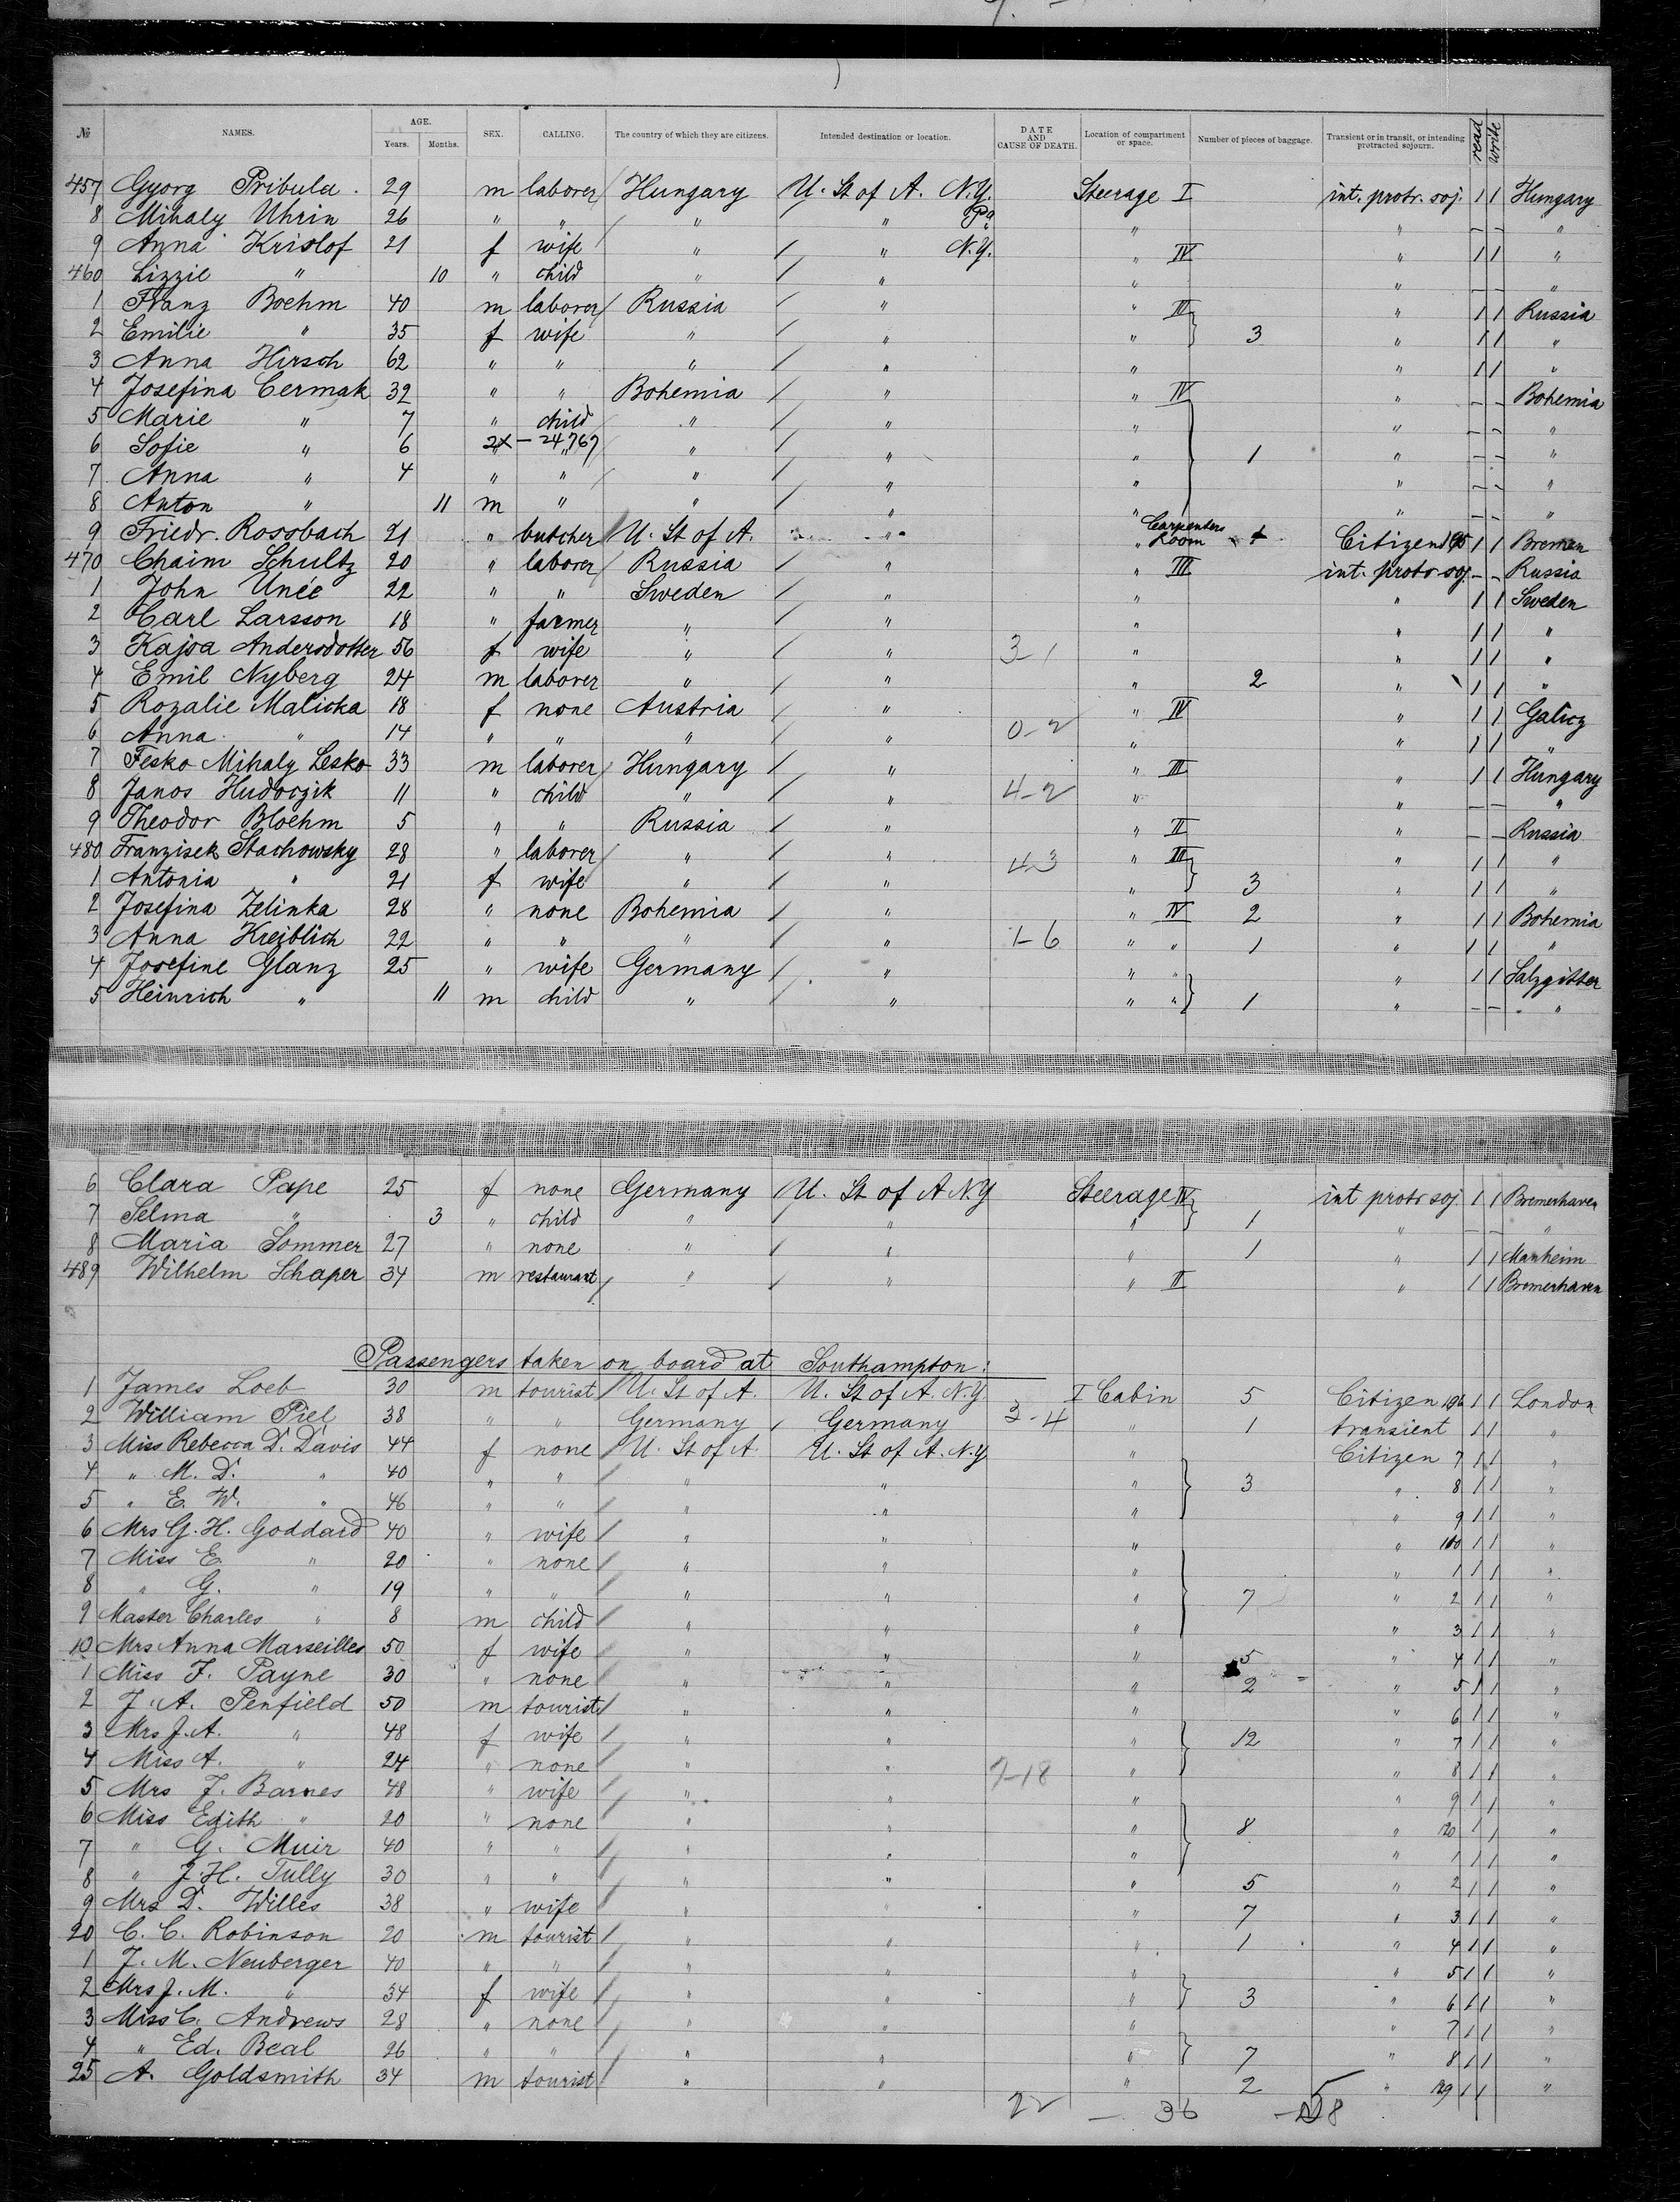 № NAMES. AGE. Years. Months. SEX. CALLING. The country of which they are citizens. Intended destination or location. DATE AND CAUSE OF DEATH. Location of compartment or space. Number of pieces of baggage. Transient or in transit, or intending protracted sojourn. read write
457 Gyorg Pribula. 29 m laborer Hungary U. St of A. N.Y. Steerage I int. protr. soj. 1 1 Hungary
8 Mihaly Uhrin 26 " " " " Pa " " – – "
9 Anna Kristof 21 f wife " " N.Y. " IV " 1 1 "
460 Lizzie " 10 " child " " " " – – "
1 Franz Boehm 40 m laborer Russia " " III " 1 1 Russia
2 Emilie " 35 f wife " " " 3 " 1 1 "
3 Anna Hirsch 62 " " " " " " 1 1 "
4 Josefina Cermak 32 " " Bohemia " " IV " – – Bohemia
5 Marie " 7 " child " " " " – – "
6 Sofie " 6 2x – 24,767 " " " 1 " – – "
7 Anna " 4 " " " " " " – – "
8 Anton " 11 m " " " " " – – "
9 Friedr. Rossbach 21 " butcher U. St of A. " " Carpenters Room Citizen 1 1 Bremen
470 Chaim Schultz 20 " laborer Russia " " III int. protr soj. – – Russia
1 John Unée 22 " " Sweden " " " 1 1 Sweden
2 Carl Larsson 18 " farmer " " " " 1 1 "
3 Kajsa Andersdotter 56 f wife " " 3-1 " " 1 1 "
4 Emil Nyberg 24 m laborer " " " 2 " 1 1 "
5 Rozalie Malicka 18 f none Austria " " IV " 1 1 Galicz
6 Anna " 14 " " " " 0-2 " " 1 1 "
7 Fesko Mihaly Lesko 33 m laborer Hungary " " III " 1 1 Hungary
8 Janos Hudoczik 11 " child " " 4-2 " " – – "
9 Theodor Bloehm 5 " " Russia " " II " – – Russia
480 Franzisek Stachowsky 28 " laborer " " 4-3 " III " 1 1 "
1 Antonia " 21 f wife " " " 3 " 1 1 "
2 Josefina Zelinka 28 " none Bohemia " " IV 2 " 1 1 Bohemia
3 Anna Kreiblich 22 " " " " 1-6 " " 1 " 1 1 "
4 Josefine Glanz 25 " wife Germany " " " " 1 1 Salzgitter
5 Heinrich " 11 m child " " " " 1 " – – "
6 Clara Pape 25 f none Germany U. St of A N.Y Steerage IV int protr soj. 1 1 Bremerhaven
7 Selma " 3 " child " " " 1 " – – "
8 Maria Sommer 27 " none " " " 1 " 1 1 Manheim
489 Wilhelm Schaper 34 m restaurant " " " II " 1 1 Bremerhaven
Passengers taken on board at Southampton:
1 James Loeb 30 m tourist U. St of A. U. St of A. N.Y. I Cabin 5 Citizen 1 1 London
2 William Piel 38 " " Germany Germany 3-4 " 1 transient 1 1 "
3 Miss Rebecca D. Davis 44 f none U. St of A U. St of A. N.Y. " Citizen 7 1 1 "
4 " M. D. " 40 " " " " " 3 " 8 1 1 "
5 " E. W. " 46 " " " " " " 9 1 1 "
6 Mrs G. H. Goddard 40 " wife " " " " 1 1 "
7 Miss E. " 20 " none " " " " 1 1 1 "
8 " G. " 19 " " " " " 7 " 2 1 1 "
9 Master Charles " 8 m child " " " " 3 1 1 "
10 Mrs Anna Marseilles 50 f wife " " " 5 " 4 1 1 "
1 Miss F. Payne 30 " none " " " 2 " 5 1 1 "
2 J. A. Penfield 50 m tourist " " " " 6 1 1 "
3 Mrs J. A. " 48 f wife " " " 12 " 7 1 1 "
4 Miss A. " 24 " none " " 7-18 " " 8 1 1 "
5 Mrs J. Barnes 48 " wife " " " " 9 1 1 "
6 Miss Edith " 20 " none " " " 8 " 20 1 1 "
7 " G. Muir 40 " " " " " " 1 1 1 "
8 " J. H. Tully 30 " " " " " 5 " 2 1 1 "
9 Mrs D. Willes 38 " wife " " " 7 " 3 1 1 "
20 C. C. Robinson 20 m tourist " " " 1 " 4 1 1 "
1 J. M. Neuberger 40 " " " " " " 5 1 1 "
2 Mrs J. M. " 34 f wife " " " 3 " 6 1 1 "
3 Miss C. Andrews 28 " none " " " " 7 1 1 "
4 " Ed. Beal 26 " " " " " 7 " 8 1 1 "
25 A. Goldsmith 34 m tourist " " " 2 " 129 1 1 "
22 – 36